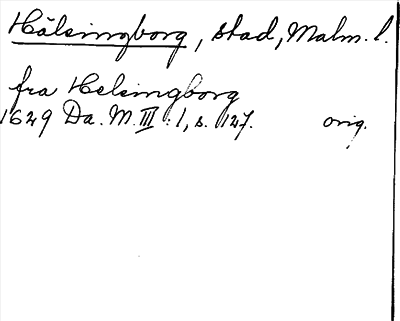 Hälsingborg, stad, Malm. l.
fra Helsingborg
1629 Da. M. III : 1, s. 127. orig.